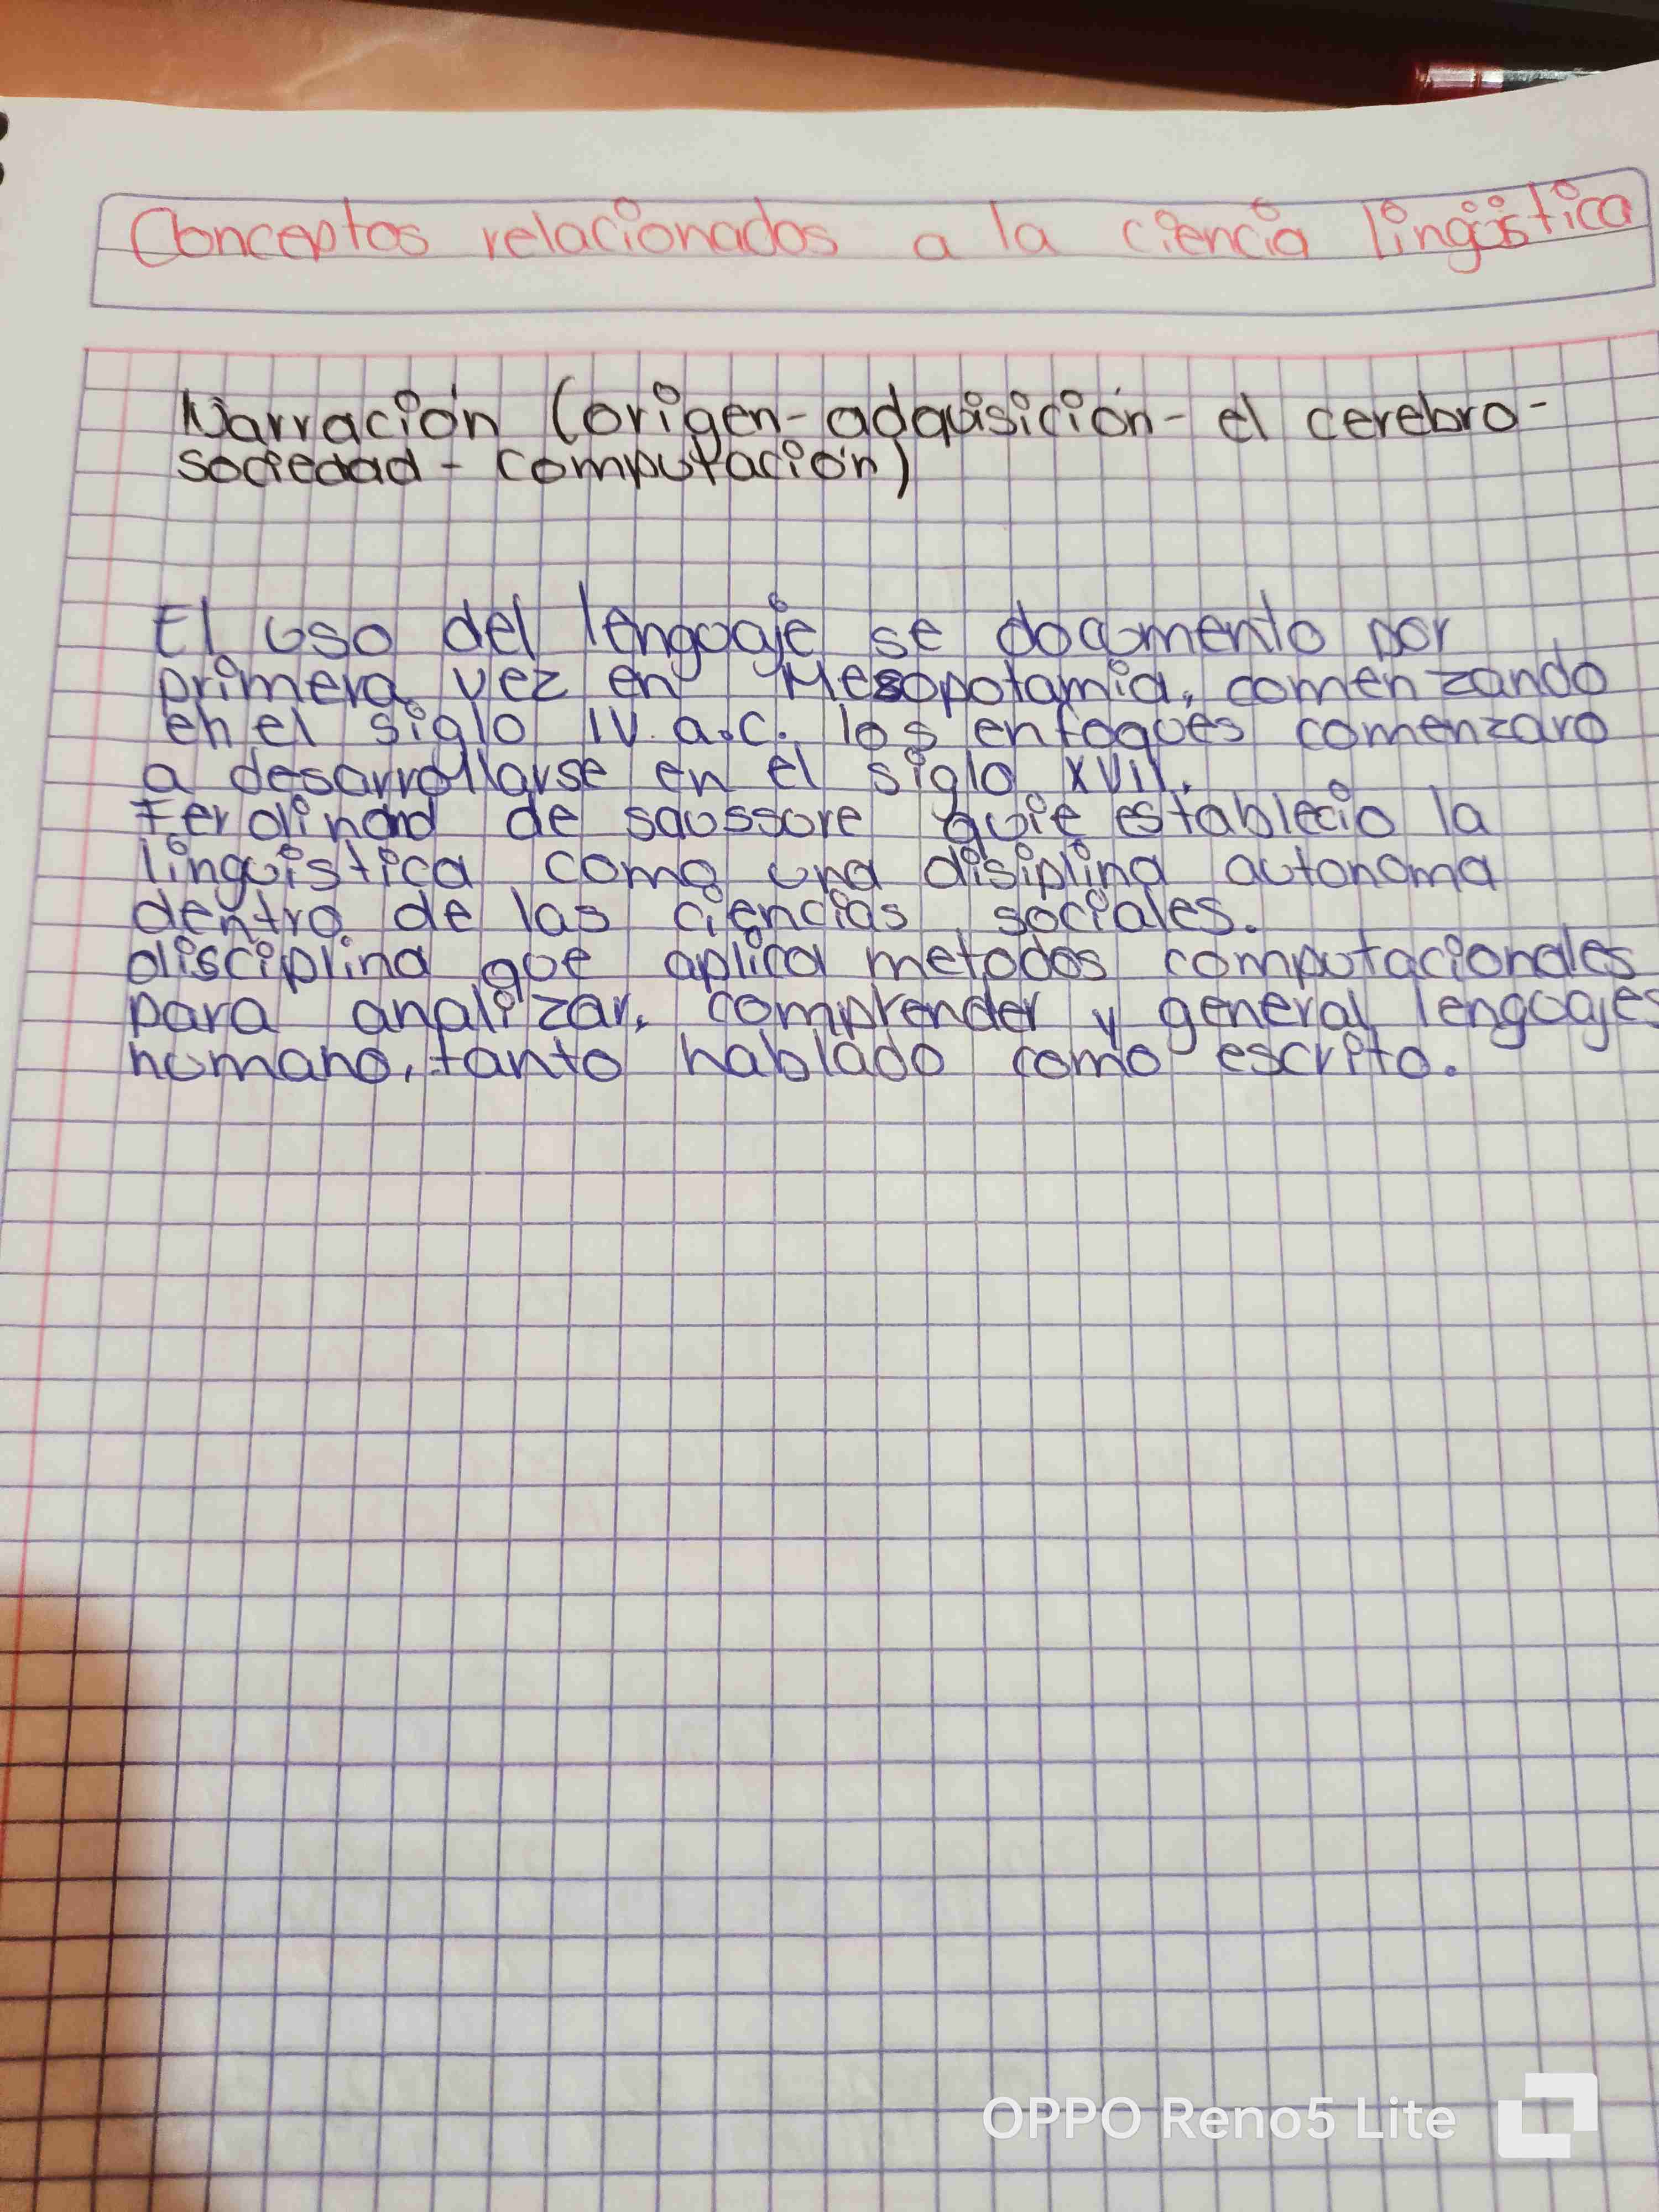 Conceptos relacionados a la ciencia lingüistica
Narración (origen-adquisición- el cerebro-
sociedad - computación)
El uso del lenguaje se documento por
primera vez en Mesopotamia, comenzando
en el siglo IV. a.c. los enfoques comenzaro
a desarrollarse en el siglo XVII.
Ferdinand de saussore quie establecio la
linguistica como una disiplina autonoma
dentro de las ciencias sociales.
disciplina que aplica metodos computacionales
para analizar, comprender y general lenguajes
humano, tanto hablado como escrito.
OPPO Reno5 Lite